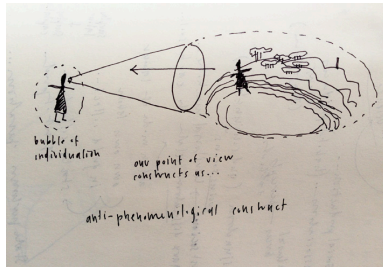 bubble of
individualism
our point of view
constructs us...
anti-phenomenological construct